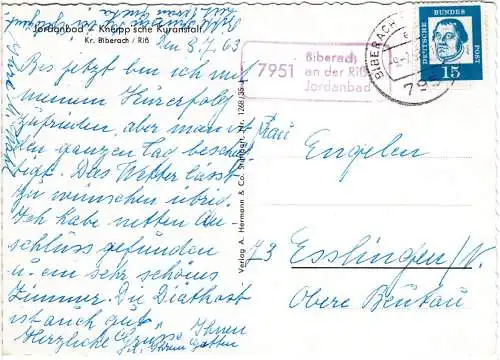 Jordanbad – Kneipp'sche Kuranstalt
Kr. Biberach / Riß
Den 8.7.63
Bis jetzt bin ich mit
meinem Kurerfolg
zufrieden, aber man ist
den ganzen Tag beschäf-
tigt. Das Wetter lässt
zu wünschen übrig.
Ich habe netten An-
schluss gefunden
u. ein sehr schönes
Zimmer. Die Diätkost
ist auch gut.
Herzliche Grüsse Ihnen
u. Ihrem Gatten
Verlag A. Hermann & Co. Stuttgart, Nr. 1268/35
7951
Biberach
an der Riß
Jordanbad
BIBERACH
795
DEUTSCHE BUNDESPOST
15
Frau
Engelen
73 Esslingen/N.
Obere Beutau